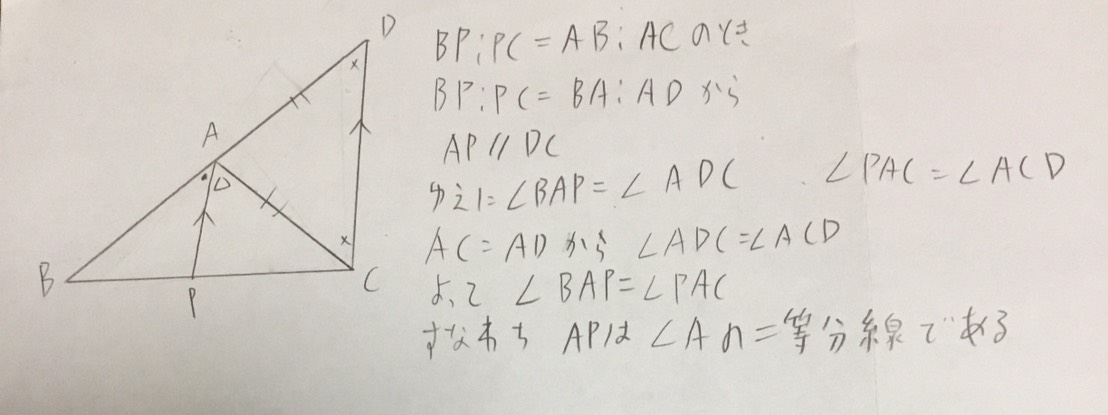 D
A
B
P
C
BP:PC=AB:ACのとき
BP:PC=BA:ADから
AP//DC
ゆえに∠BAP=∠ADC ∠PAC=∠ACD
AC=ADから ∠ADC=∠ACD
よって ∠BAP=∠PAC
すなわち APは∠Aの二等分線である